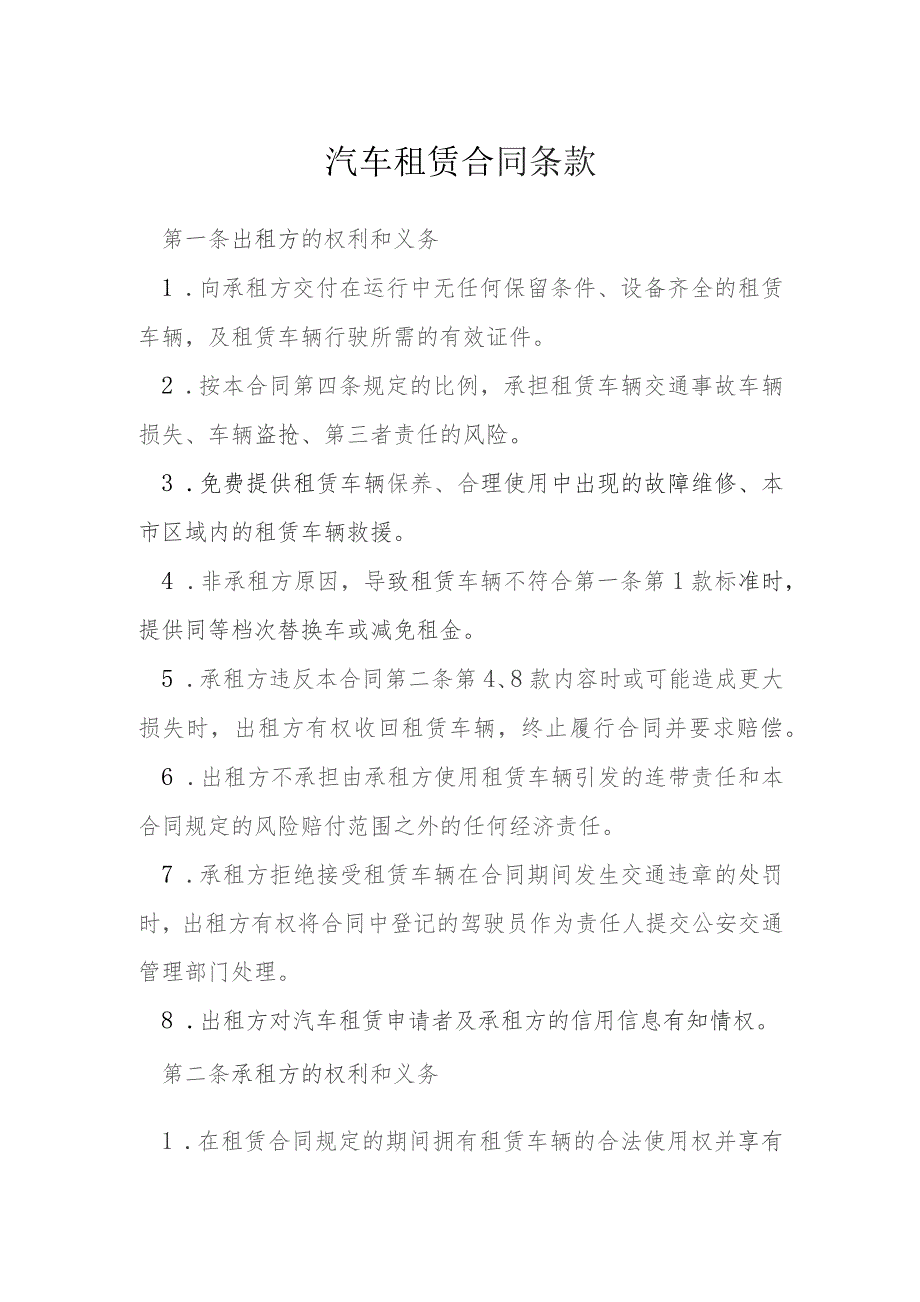 汽车租赁合同条款
第一条出租方的权利和义务
1 .向承租方交付在运行中无任何保留条件、设备齐全的租赁
车辆，及租赁车辆行驶所需的有效证件。
2 .按本合同第四条规定的比例，承担租赁车辆交通事故车辆
损失、车辆盗抢、第三者责任的风险。
3 .免费提供租赁车辆保养、合理使用中出现的故障维修、本
市区域内的租赁车辆救援。
4 .非承租方原因，导致租赁车辆不符合第一条第1款标准时，
提供同等档次替换车或减免租金。
5 .承租方违反本合同第二条第4、8款内容时或可能造成更大
损失时，出租方有权收回租赁车辆，终止履行合同并要求赔偿。
6 .出租方不承担由承租方使用租赁车辆引发的连带责任和本
合同规定的风险赔付范围之外的任何经济责任。
7 .承租方拒绝接受租赁车辆在合同期间发生交通违章的处罚
时，出租方有权将合同中登记的驾驶员作为责任人提交公安交通
管理部门处理。
8 .出租方对汽车租赁申请者及承租方的信用信息有知情权。
第二条承租方的权利和义务
1 .在租赁合同规定的期间拥有租赁车辆的合法使用权并享有